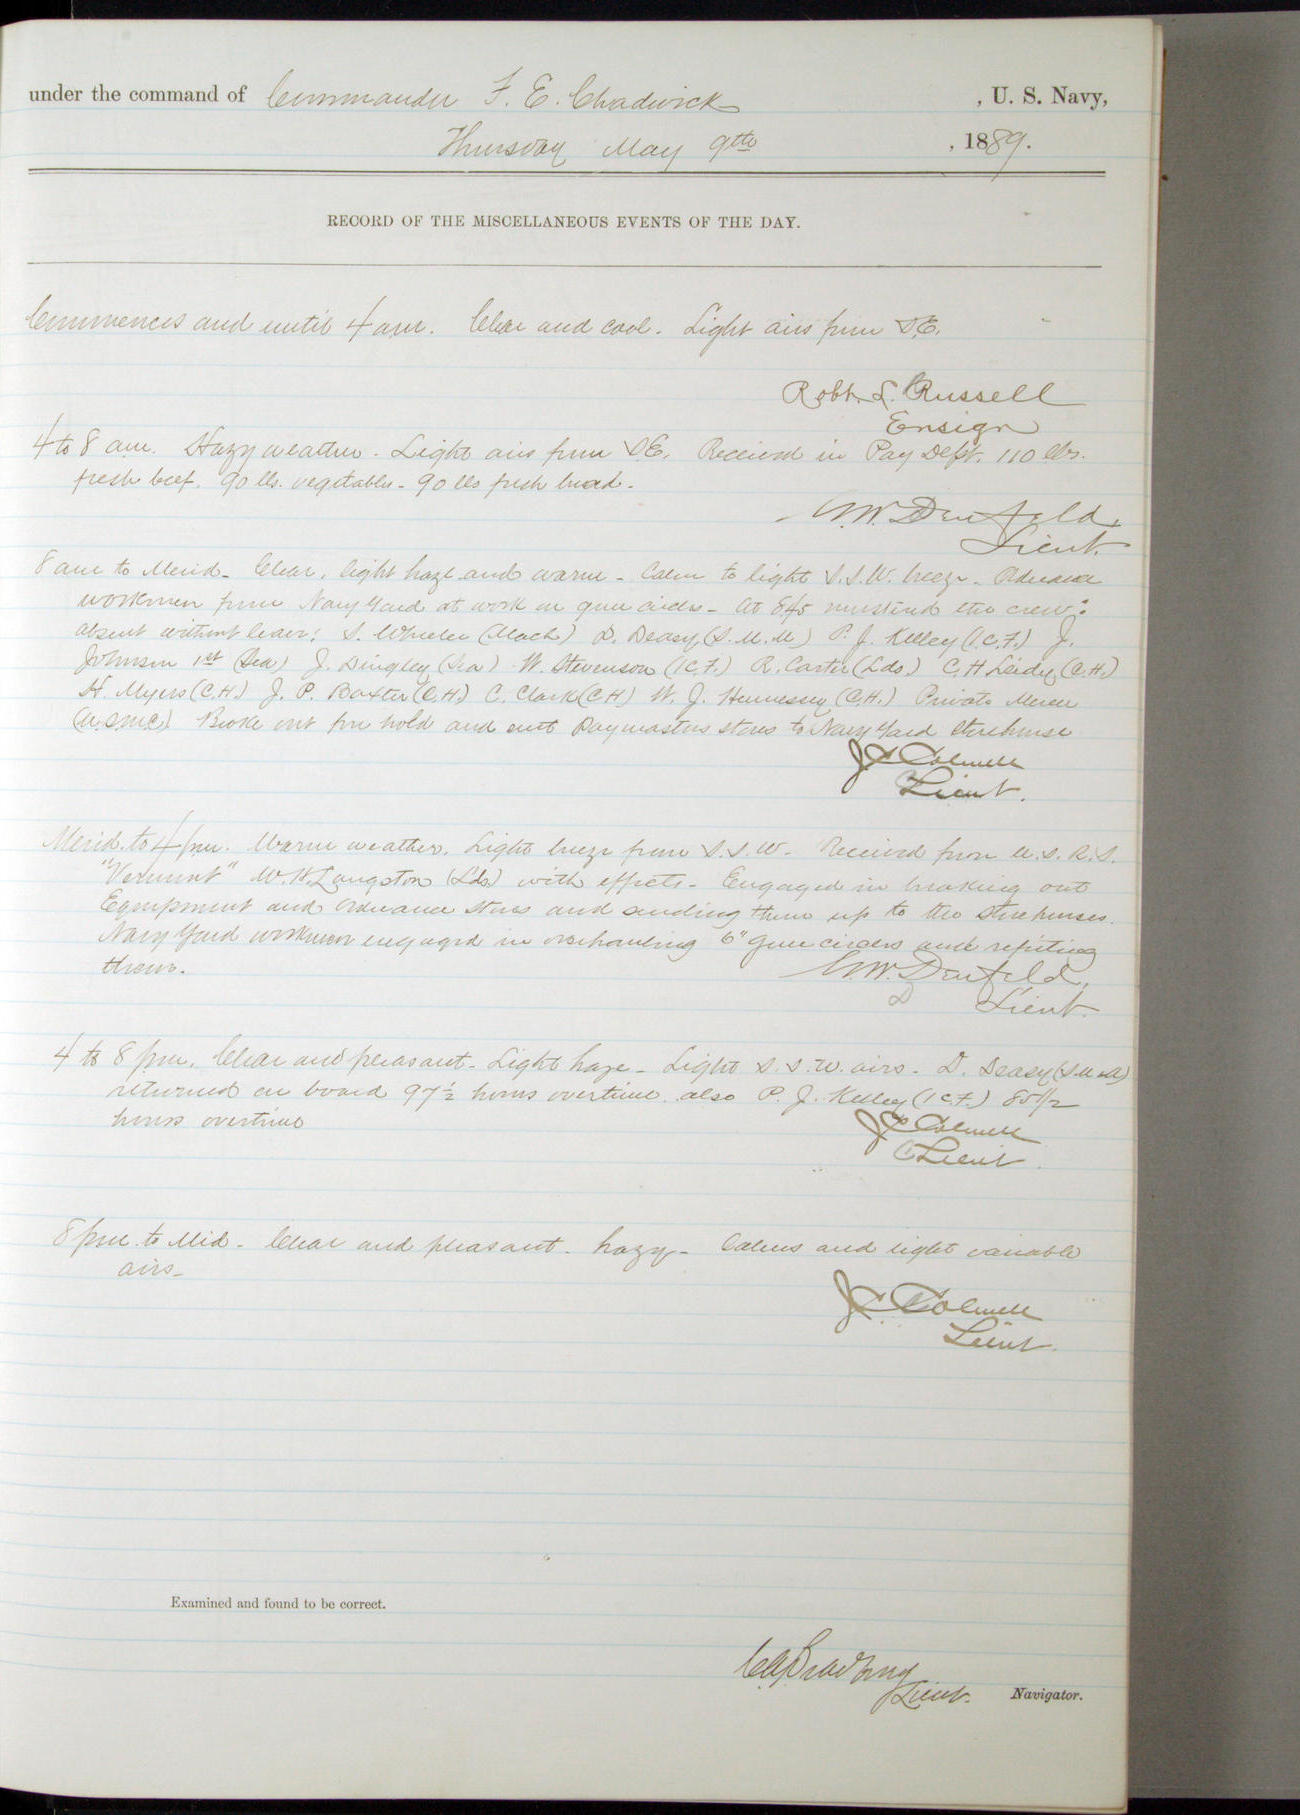 under the command of Commander F. E. Chadwick, U. S. Navy,
Thursday May 9th, 1889.
RECORD OF THE MISCELLANEOUS EVENTS OF THE DAY.
Commences and until 4 a.m. Clear and cool. Light airs from S.E.
Robt. L. Russell
Ensign
4 to 8 a.m. Hazy weather. Light airs from S.E. Received in Pay Dept. 110 lbs.
fresh beef. 90 lbs. vegetables. 90 lbs fresh bread.
G.W. Denfeld,
Lieut.
8 am to Merid. Clear, light haze and warm. Calm to light S.S.W. breeze. Ordnance
workmen from Navy Yard at work on gun circles. At 8.45 mustered the crew:
absent without leave: S. Wheeler (Mach) D. Deasy (S.M.M) P. J. Kelley (1C.F.) J.
Johnson 1st (Sea) J. Dingley (Sea) W. Stevenson (1C.F.) R. Carter (Lds.) C. H Leidy (C.H.)
H. Myers (C.H.) J. P. Baxter (C.H.) C. Clark (C H) W. J. Hennessey (C.H.) Private Mercer
(U.S.M.C.) Broke out fore hold and sent Paymasters stores to Navy Yard Storehouse
J C Colwell
Lieut.
Merid. to 4 p.m. Warm weather. Light breeze from S.S.W. Received from U.S.R.S.
"Vermont" W. H. Langston (Lds.) with effects. Engaged in breaking out
Equipment and Ordnance stores and sending them up to the storehouses.
Navy Yard workmen engaged in overhauling 6" gun circles and refitting
them.
G.W. Denfeld,
Lieut.
4 to 8 p.m. Clear and pleasant. Light haze. Light S.S.W. airs. D. Deasy (S.M.M)
returned on board 97 1/2 hours overtime. also P. J. Kelley (1 C.F.) 85 1/2
hours overtime
J C Colwell
Lieut.
8 p.m. to Mid. Clear and pleasant. hazy. Calms and light variable
airs.
J C Colwell
Lieut.
Examined and found to be correct.
Lieut. Navigator.